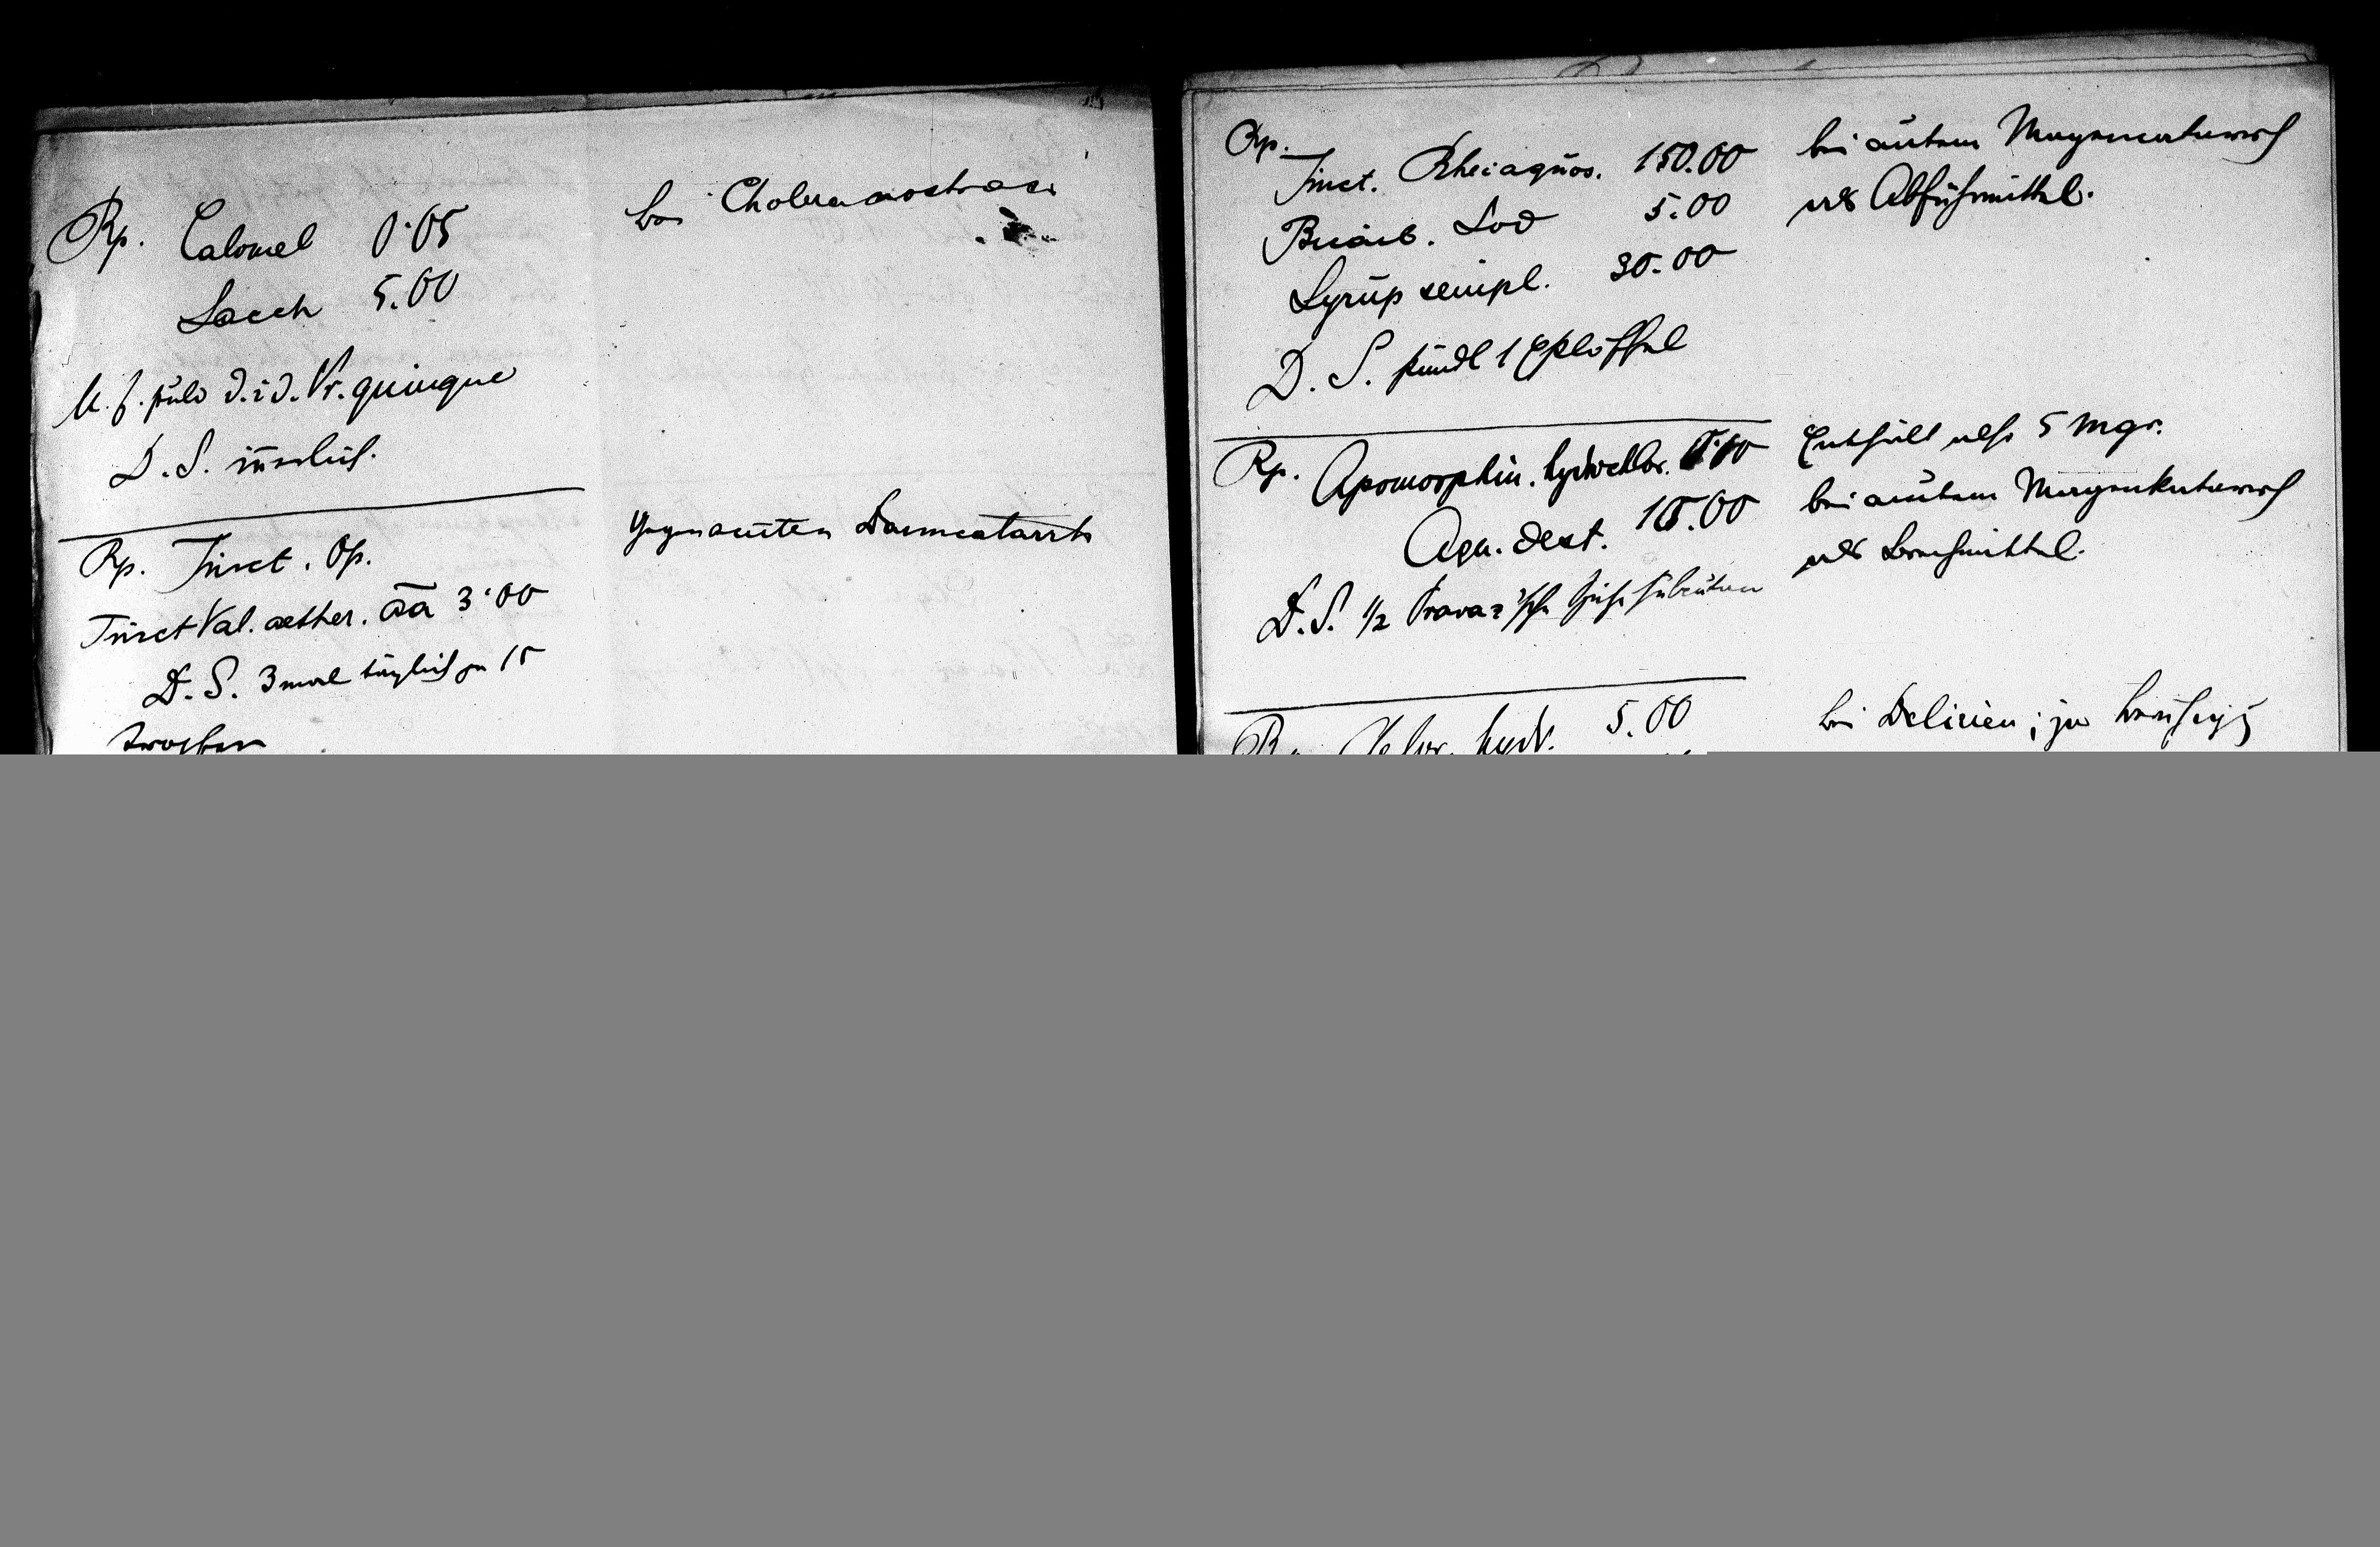 Rp. Calomel 0·05
Sacch 5.00
M. f. pulv d. i d. Nr. quinque
D. S. innerlich.
bei Cholera nostras
Rp. Tinct. Op.
Tinct Val. aether. āā 3·00
D. S. 3 mal täglich zu 15
Tropfen
Gegen acuten Darmcatarrh
Rp.
Tinct. Rhei aquos. 150.00
Bicarb. Sod 5.00
Syrup simpl. 30.00
D. S. stündl 1 Eßlöffel
bei acutem Magencatarrh
als Abführmittel.
Rp. Apomorphin. hydrochlor.
Aqu. dest. 10.00
D. S. 1/2 Pravaz'sche subcutan
Enthält also 5 Mgr.
bei acutem Magenkatarrh
als Brechmittel.
Rp. Chlor. hydr. 5.00
bei Delirien; zu